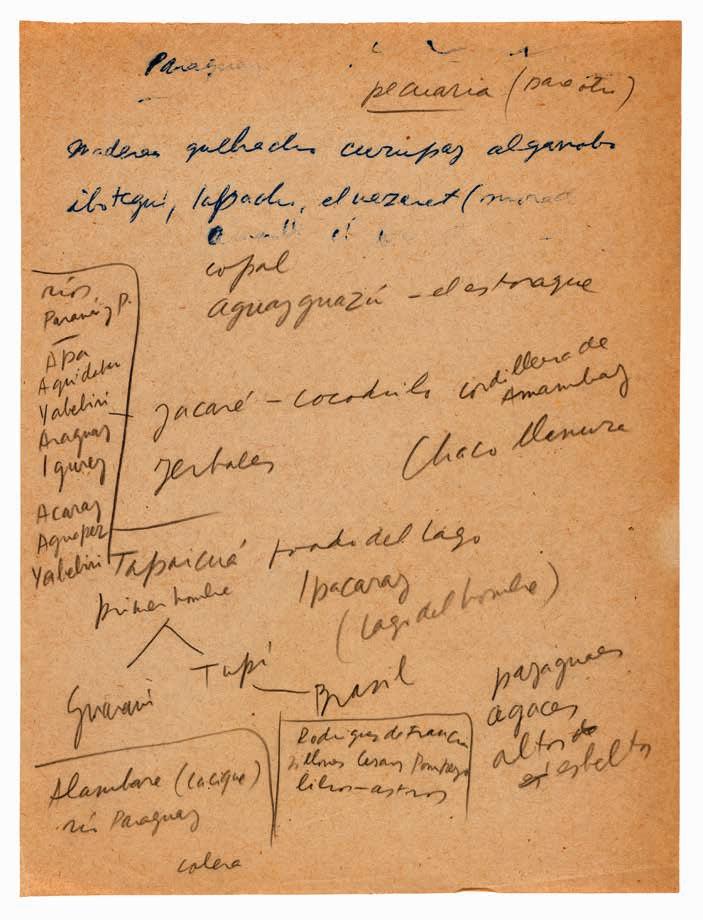 Paragua
pecuaria (
Maderas quebracho curupay algarrobo
tapacho, el nazaret (morad
copal
aguayguazú – el estoraque
ríos
Paraná y P.
Apa
Aquidaban
Yabebiri
Araguay
Igurey
Acaray
Aguapey
Yabebiri
Jacaré – cocodrilo
cordillera de
Amambay
Yerbales
Chaco llanura
Tapaicuá
primer hombre
del lago
Ipacaray
(lago del hombre)
Guaraní
Tupí
Brasil
payaguaes
agaces
altos
esbeltos
Rodriguez de Francia
sillones Cesar y Pompeyo
libros – astros
Alambare (cacique)
río Paraguay
colera